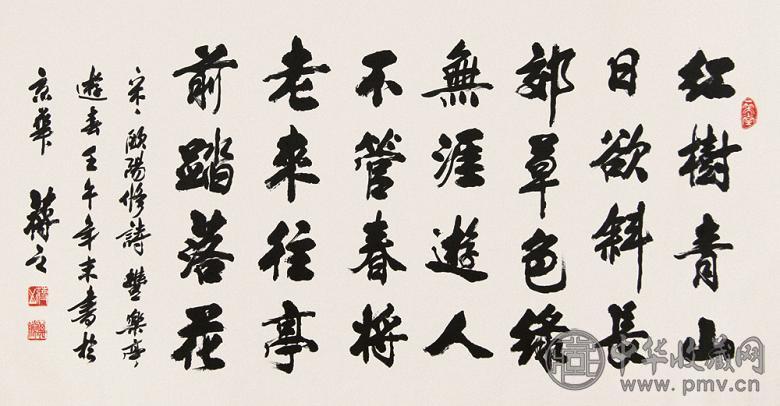 紅樹青山
日欲斜長
郊草色綠
無涯遊人
不管春將
老來往亭
前踏落花
宋、歐陽修詩豐樂亭
遊春壬午年末書於
京華 蔣之
中华收藏网
www.pmv.cn